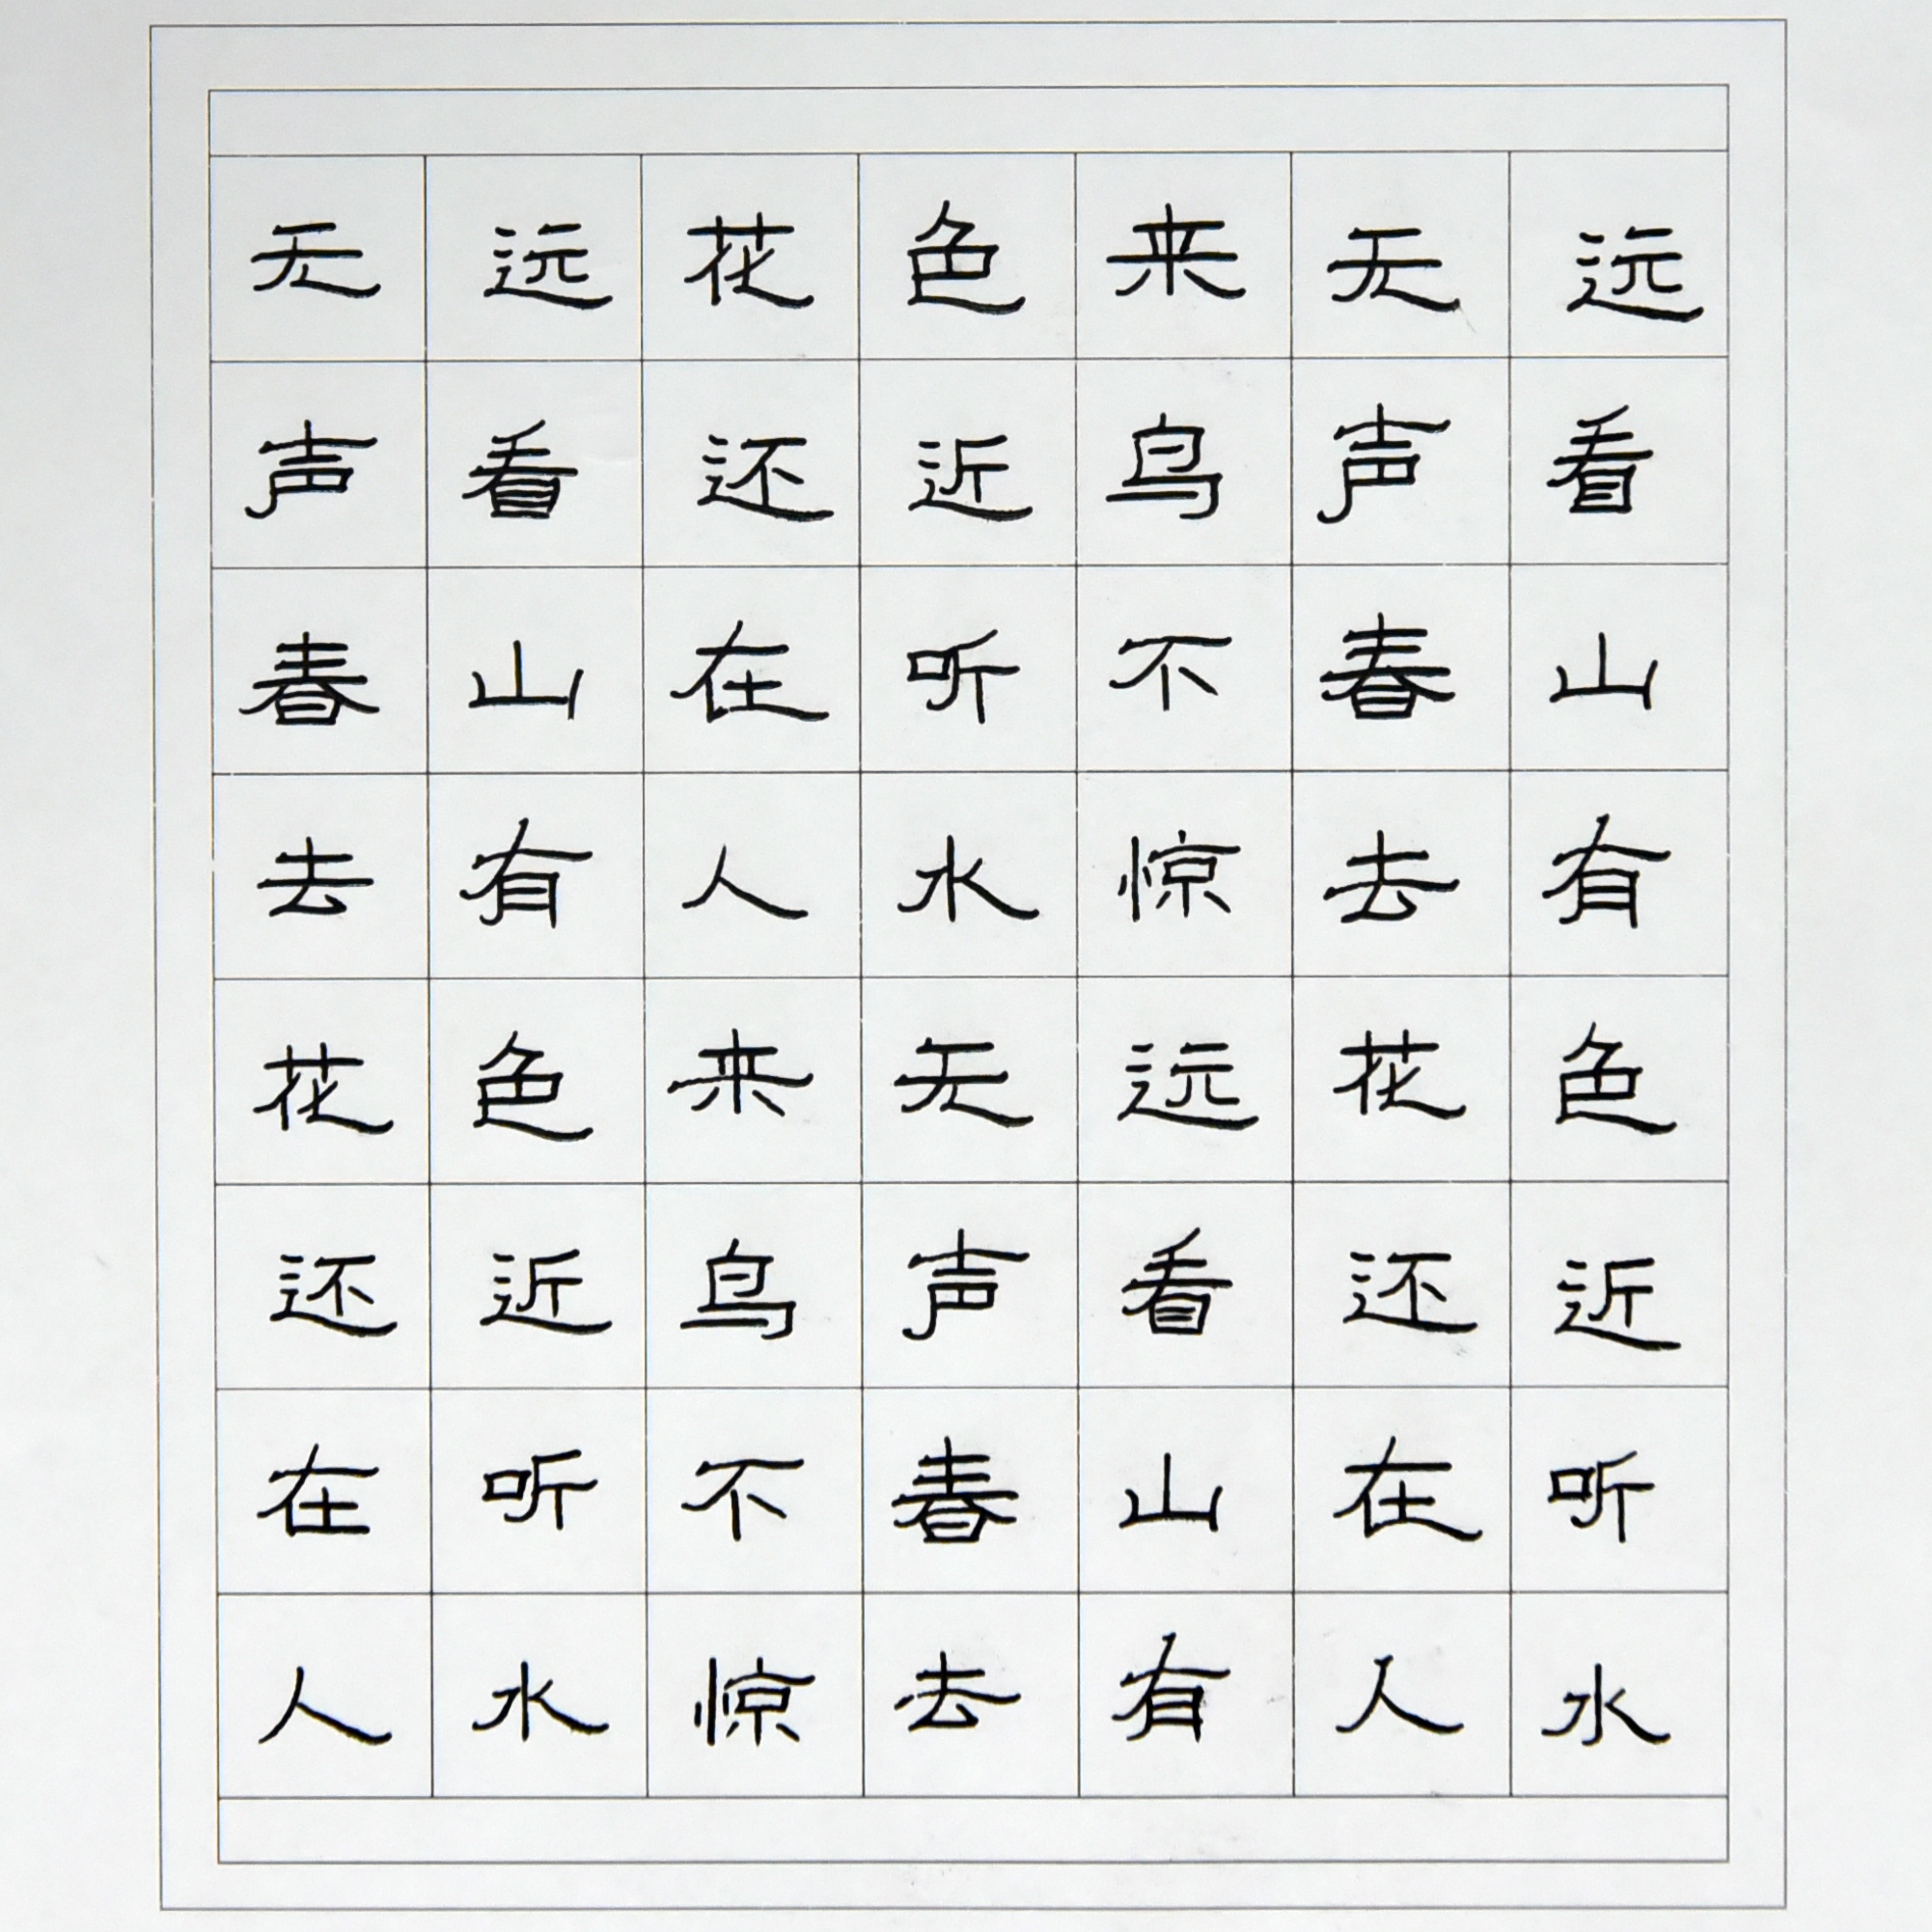 远看山有色近听水
无声春去花还在人
来鸟不惊远看山有
色近听水无声春去
花还在人来鸟不惊
远看山有色近听水
无声春去花还在人